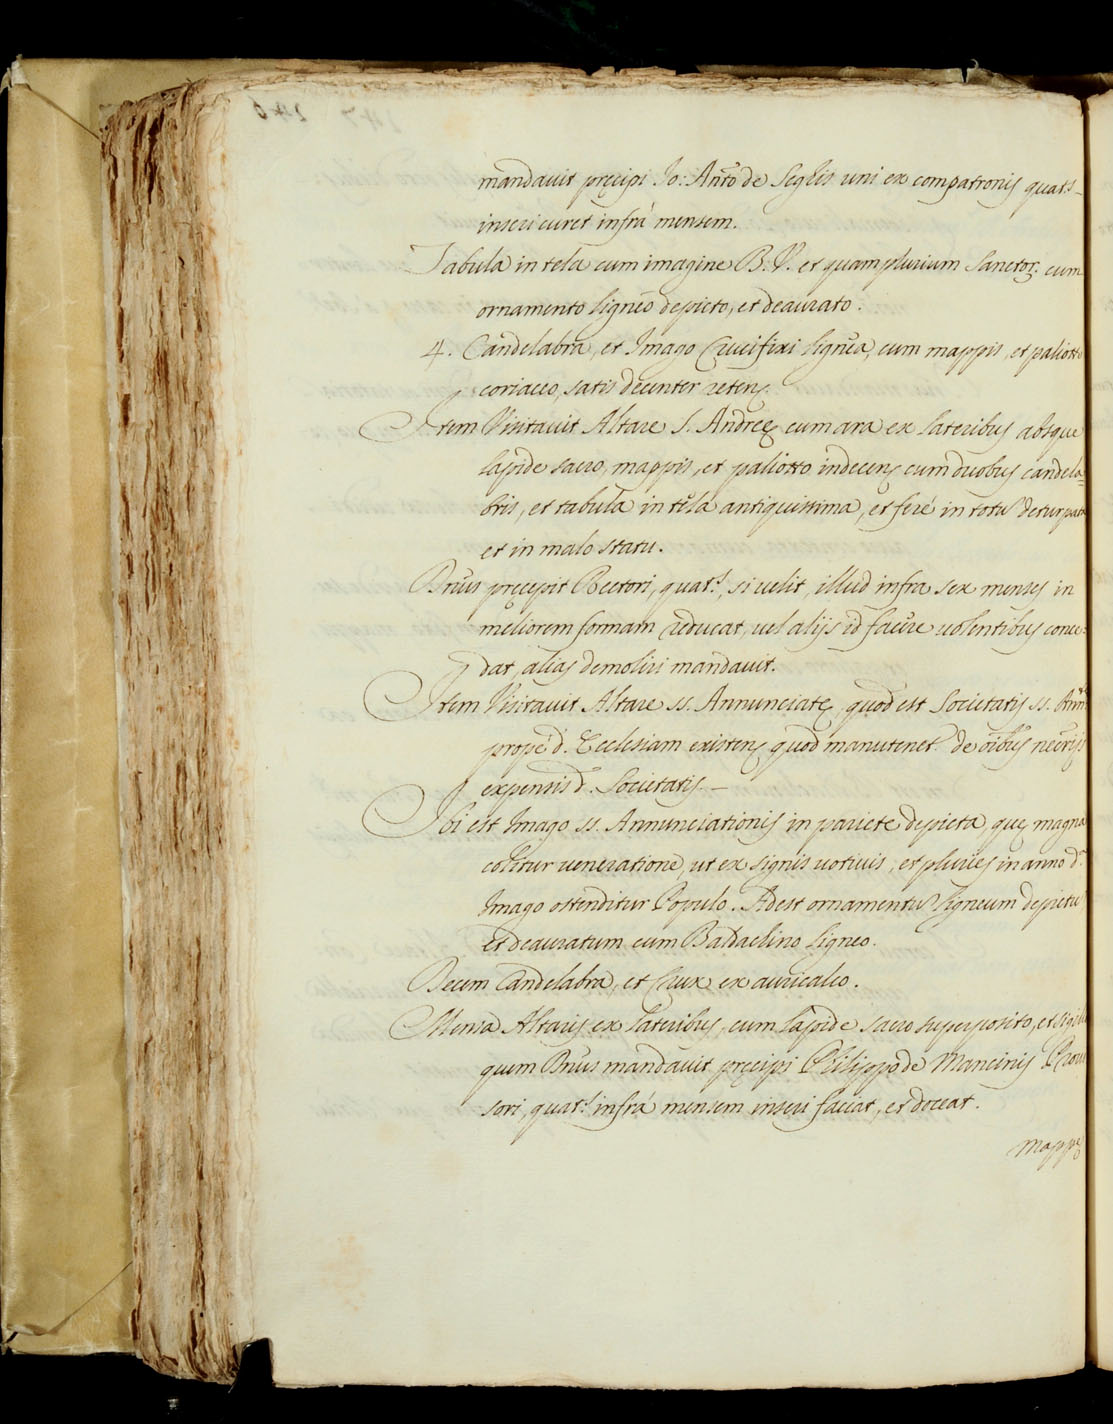 mandavit pręcipi Io: Anto de Seghis uni ex compatronis quat.s
inseri curet infrà mensem.
Tabula in tela cum imagine B. V. et quamplurium Sanctor. cum
ornamento ligneo depicto, et deaurato.
4. Candelabra, et Imago Crucifixi lignea, cum mappis, et paliotto
coriaceo, satis decenter retent.
Item Visitavit Altare S. Andreę cum ara ex lateribus absque
lapide sacro, mappis, et paliotto indecens cum duobus candela=
bris, et tabula in tela antiquissima, et ferè in totu deturpata
et in malo statu.
Dnus pręcepit Rectori, quat.s, si velit, illud infra sex menses in
meliorem formam reducat, vel alijs id facere volentibus conce=
dat, alias demoliri mandavit.
Item Visitavit Altare SS. Annunciatę, quod est Societatis SS. Ann.te
propè d. Ecclesiam existens quod manutenet de oibus necrijs
expensis d. Societatis.
Ibi est Imago SS. Annunciationis in pariete depicta, quę magna
colitur veneratione, ut ex signis votivis, et pluries in anno d.a
Imago ostenditur Populo. Adest ornamentu ligneum depictu
et deauratum cum Baldachino ligneo.
Decem Candelabra, et Crux ex auricalco.
Mensa Altaris ex lateribus, cum lapide sacro superposito, et
quem Dnus mandavit pręcipi Philippo de Mancinis Provi
sori, quat.s infrà mensem inseri faciat, et doceat.
Mappę